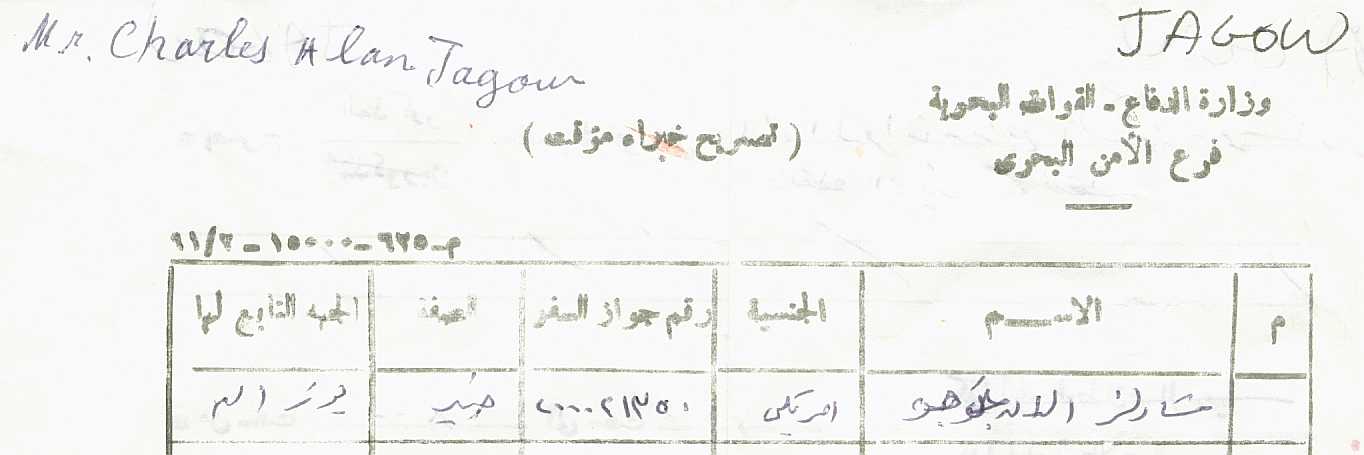 Mr. Charles Alan Jagow
JAGOW
وزارة الدفاع - القوات البحرية
فرع الأمن البحرى
( تصريح خبراء مؤقت )
م-٦٢٥-١٥٠٠٠-٩١/٣
م الاســـم الجنسية رقم جواز السفر الصفة الجهه التابع لها
شارلز الان امريكى خبير